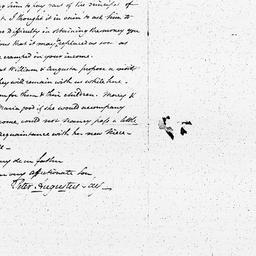 him to any part of the principal of
I thought it in vain to ask him to
difficulty in obtaining the money you
that it may be replaced as soon as
cramped in your income.
William & Augusta propose a visit
they will remain with us while here
for them & their children.
Maria good if she would accompany
come, would not Nancy pass a little
acquaintance with her new Niece
my dear father
very affectionate son,
Peter Augustus Jay